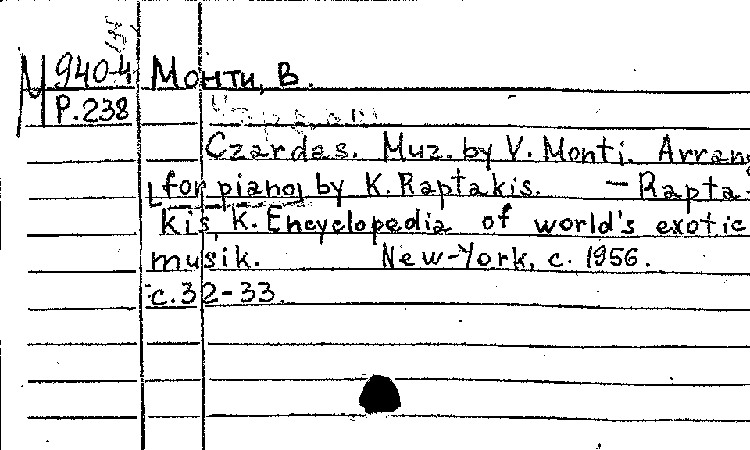 М 940-4 Монти, В.
Р.238
Czardas. Muz. by V. Monti. Arrang
[for piano] by K. Raptakis. — Rapta
kis, K. Encyclopedia of world's exotic
musik. New-York, c. 1956.
с.32-33.